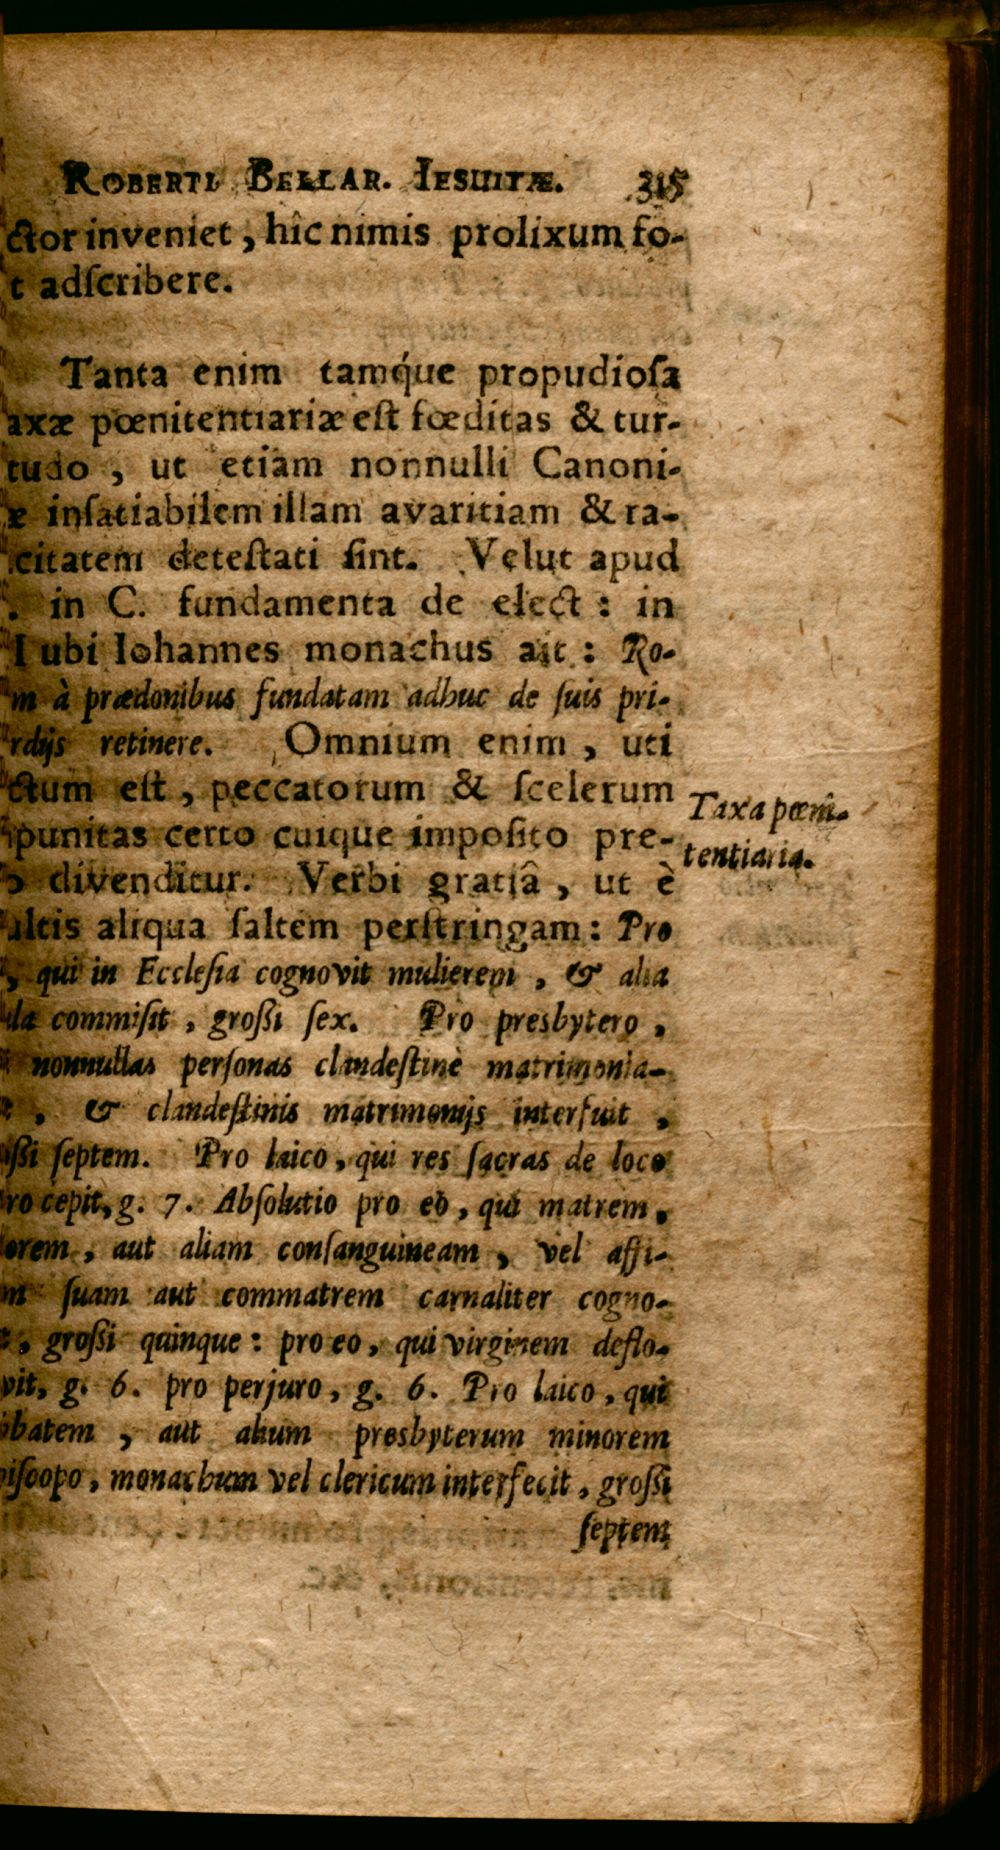 ROBERTI BELLAR. IESUITÆ. 315
ctor inveniet, hîc nimis prolixum fo-
t adſcribere.
Tanta enim tamq́ue propudioſa
axæ pœnitentiariæ eſt fœditas & tur-
tudo, ut etiam nonnulli Canoni-
æ inſatiabilem illam avaritiam & ra-
citatem deteſtati ſint. Velut apud
. in C. fundamenta de elect: in
I ubi Iohannes monachus ait: Ro-
m à prædonibus fundatam adhuc de ſuis pri-
rdijs retinere. Omnium enim, uti
ctum eſt, peccatorum & ſcelerum
punitas certo cuique impoſito pre-
o divenditur. Verbi gratiâ, ut è
ultis aliqua ſaltem perſtringam: Pro
, qui in Eccleſia cognovit mulierem, & alia
ala commiſit, groſſi ſex. Pro presbytero,
nonnullas perſonas clandeſtinè matrimonia-
, & clandeſtinis matrimonijs interfuit,
oſſi ſeptem. Pro laico, qui res ſacras de loco
ro cepit, g. 7. Abſolutio pro eo, qui matrem,
orem, aut aliam conſanguineam, vel affi-
m ſuam aut commatrem carnaliter cogno-
t, groſſi quinque: pro eo, qui virginem deflo-
vit, g. 6. pro perjuro, g. 6. Pro laico, qui
bbatem, aut alium presbyterum minorem
piſcopo, monachum vel clericum interfecit, groſſi
ſeptem
Taxa pœni-
tentiaria.